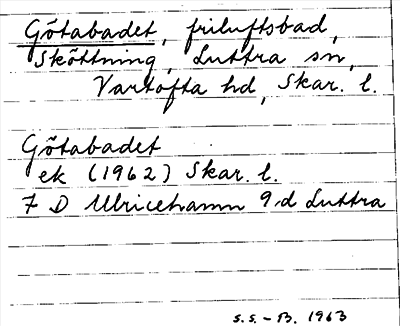 Götabadet, friluftsbad,
Sköttning, Luttra sn,
Vartofta hd, Skar. l.
Götabadet
ek (1962) Skar. l.
7 D Ulricehamn 9 d Luttra
S.S.-B. 1963